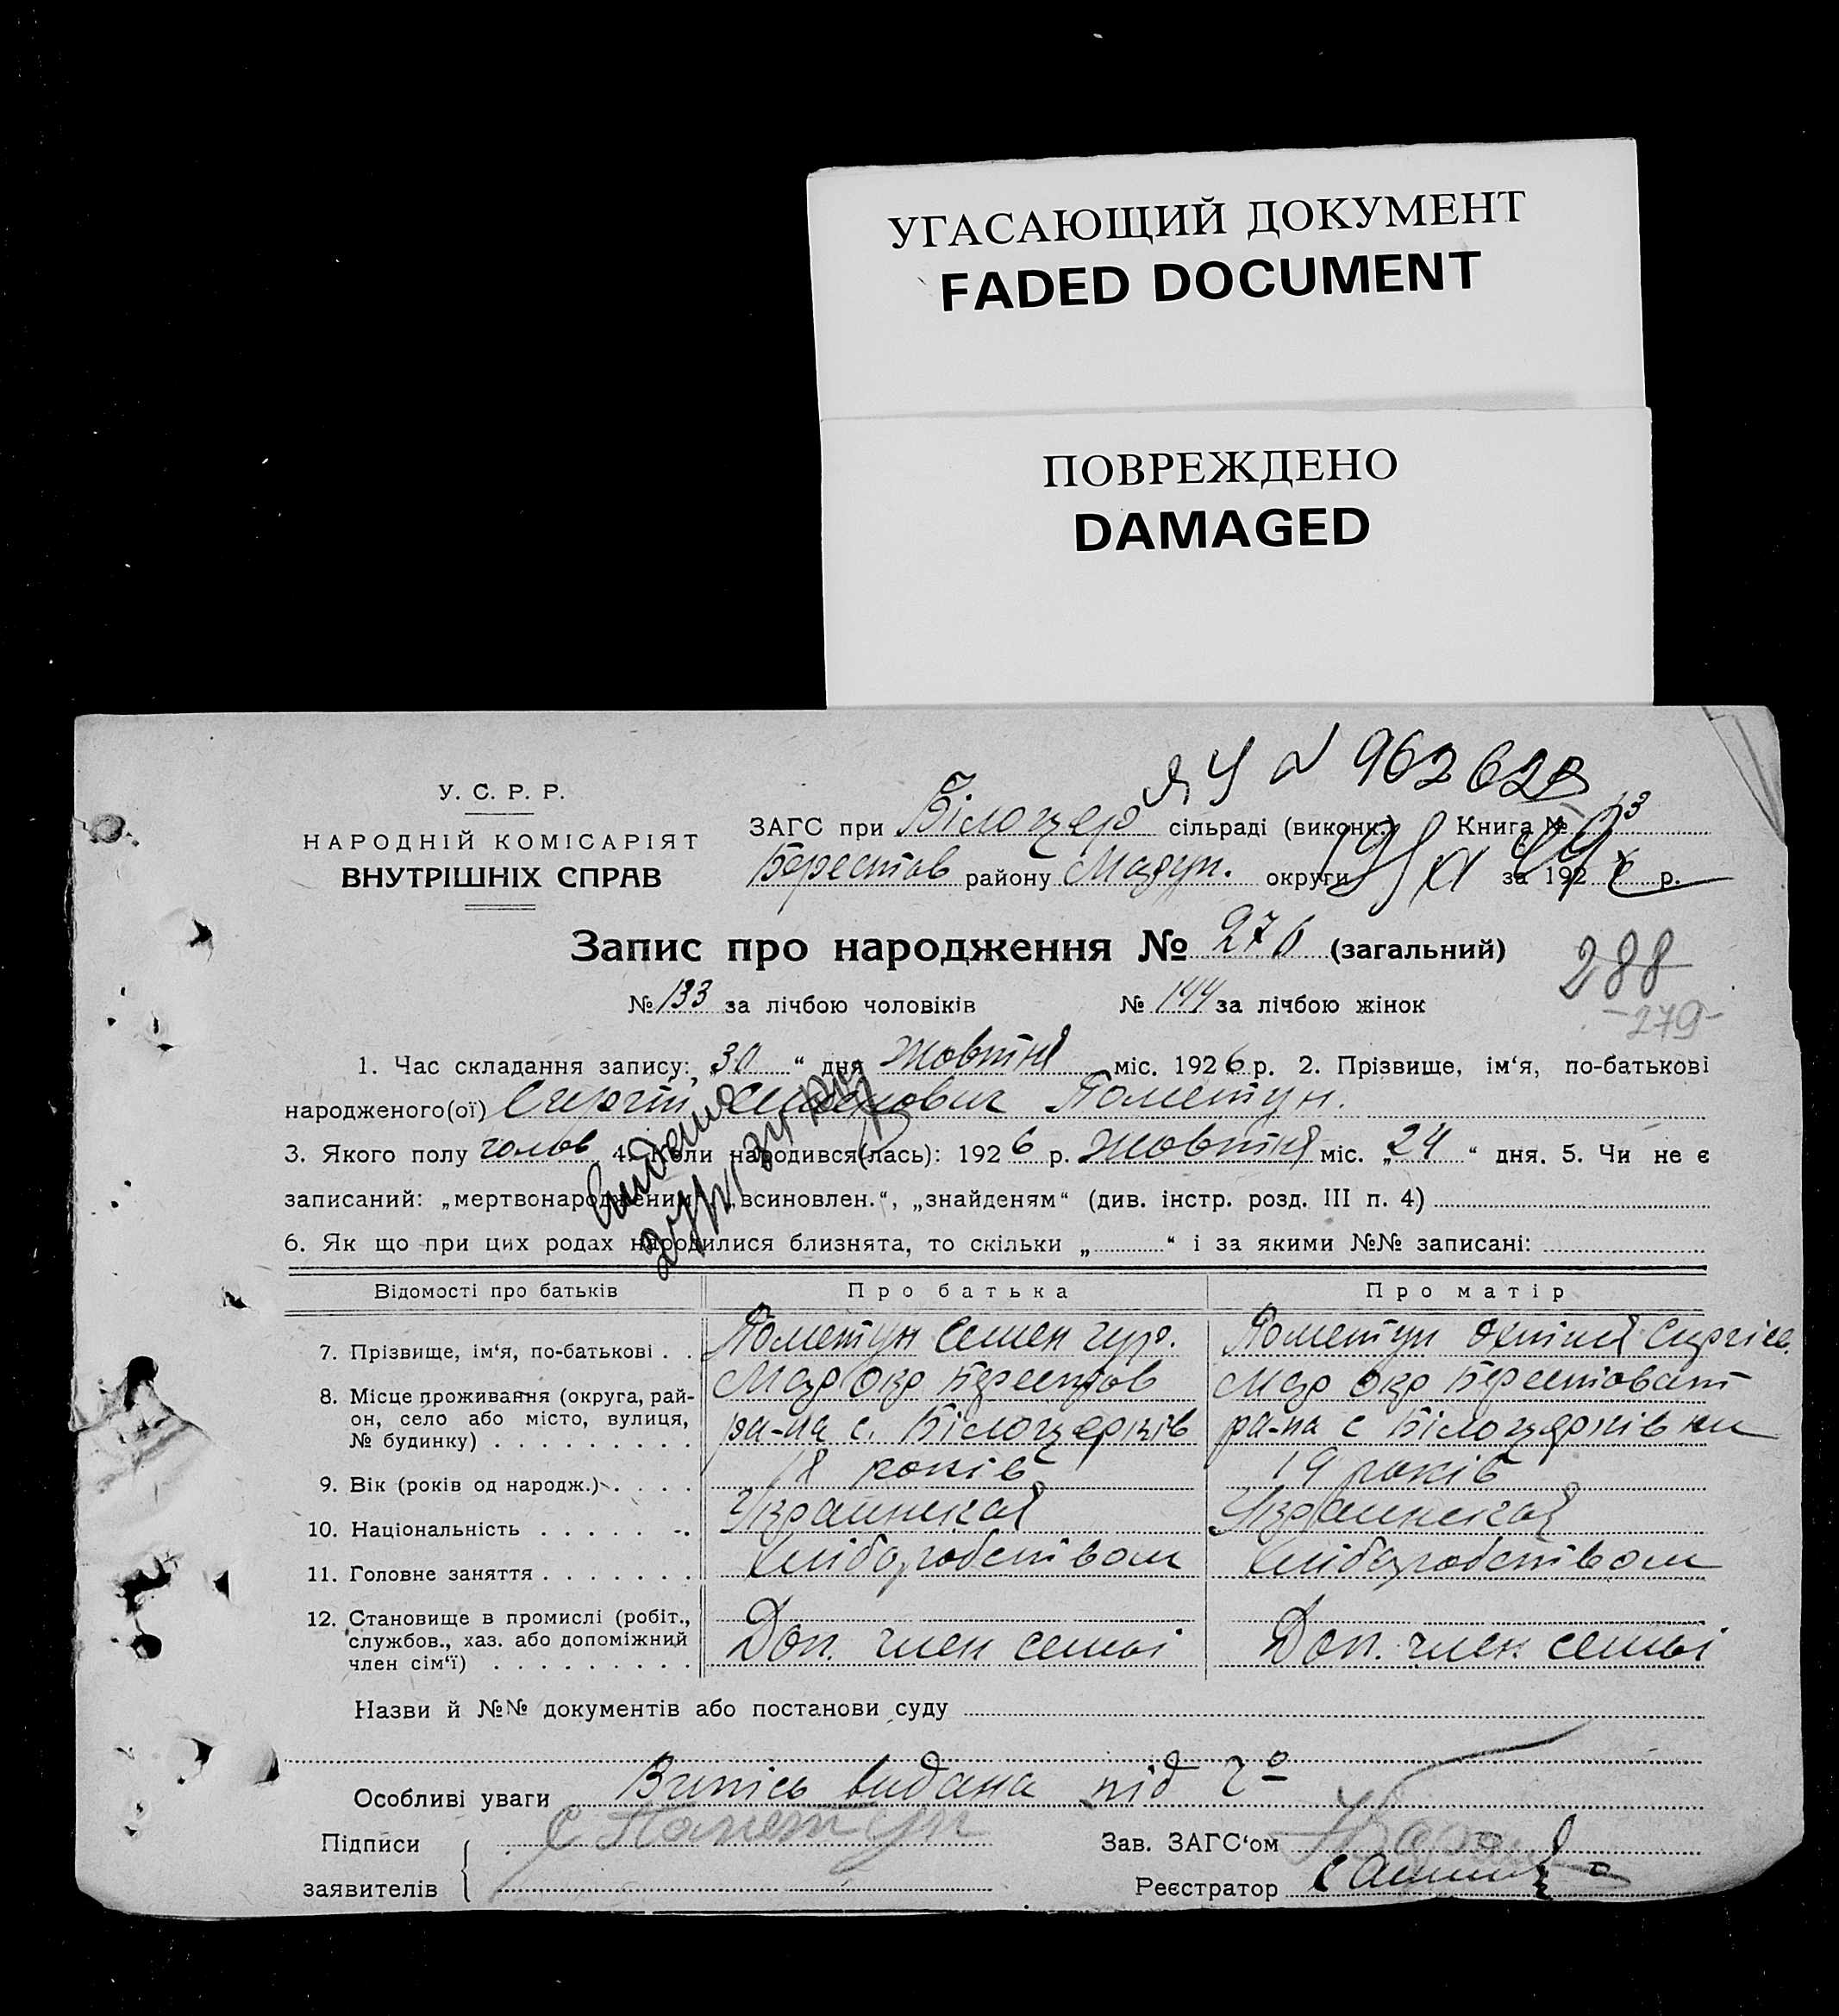 УГАСАЮЩИЙ ДОКУМЕНТ
FADED DOCUMENT
ПОВРЕЖДЕНО
DAMAGED
У. С. Р. Р.
НАРОДНІЙ КОМІСАРІЯТ
ВНУТРІШНІХ СПРАВ
N 962628
ЗАГС при Білоцер сільраді (виконк.) Книга №
Берестов району Маруп. округи за 192 р.
Запис про народження № 276 (загальний)
288
№ 133 за лічбою чоловіків № 144 за лічбою жінок
-279-
1. Час складання запису: „30“ дня Жовтня міс. 1926 р. 2. Прізвище, ім‘я, по-батькові
народженого(ої) Сергій Семенович Пометун.
3. Якого полу чолов 4. Коли народився(лась): 1926 р. Жовтня міс. „24“ дня. 5. Чи не є
записаний: „мертвонародженим“, „всиновлен.“, „знайденям“ (див. інстр. розд. III п. 4)
6. Як що при цих родах народилися близнята, то скільки „ “ і за якими №№ записані:
Відомості про батьків Про батька Про матір
7. Прізвище, ім‘я, по-батькові . . Пометун Семен Пометун
8. Місце проживання (округа, рай- Мар Окр Берестов Мар Окр Берестоват
он, село або місто, вулиця, ра-на с. Білоцерків ра-на с Білоцерківки
№ будинку) . . . . . . . . .
9. Вік (років од народж.) . . . . 18 років 19 років
10. Національність . . . . . . . Украинская Украинская
11. Головне заняття . . . . . . . Хліборобством Хліборобством
12. Становище в промислі (робіт.,
службов., хаз. або допоміжний Доп. член семьі Доп. член. семьі
член сім‘ї) . . . . . . . . .
Назви й №№ документів або постанови суду
Особливі уваги Випісь видана під
Підписи Зав. ЗАГС‘ом
заявителів Реєстратор